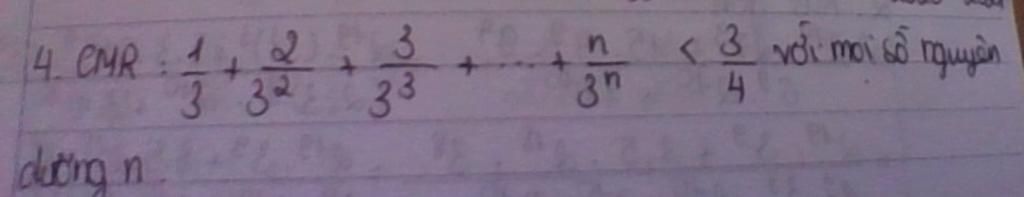 4. CMR: 1/3 + 2/3² + 3/3³ + ... + n/3ⁿ < 3/4 với mọi số nguyên
dương n.